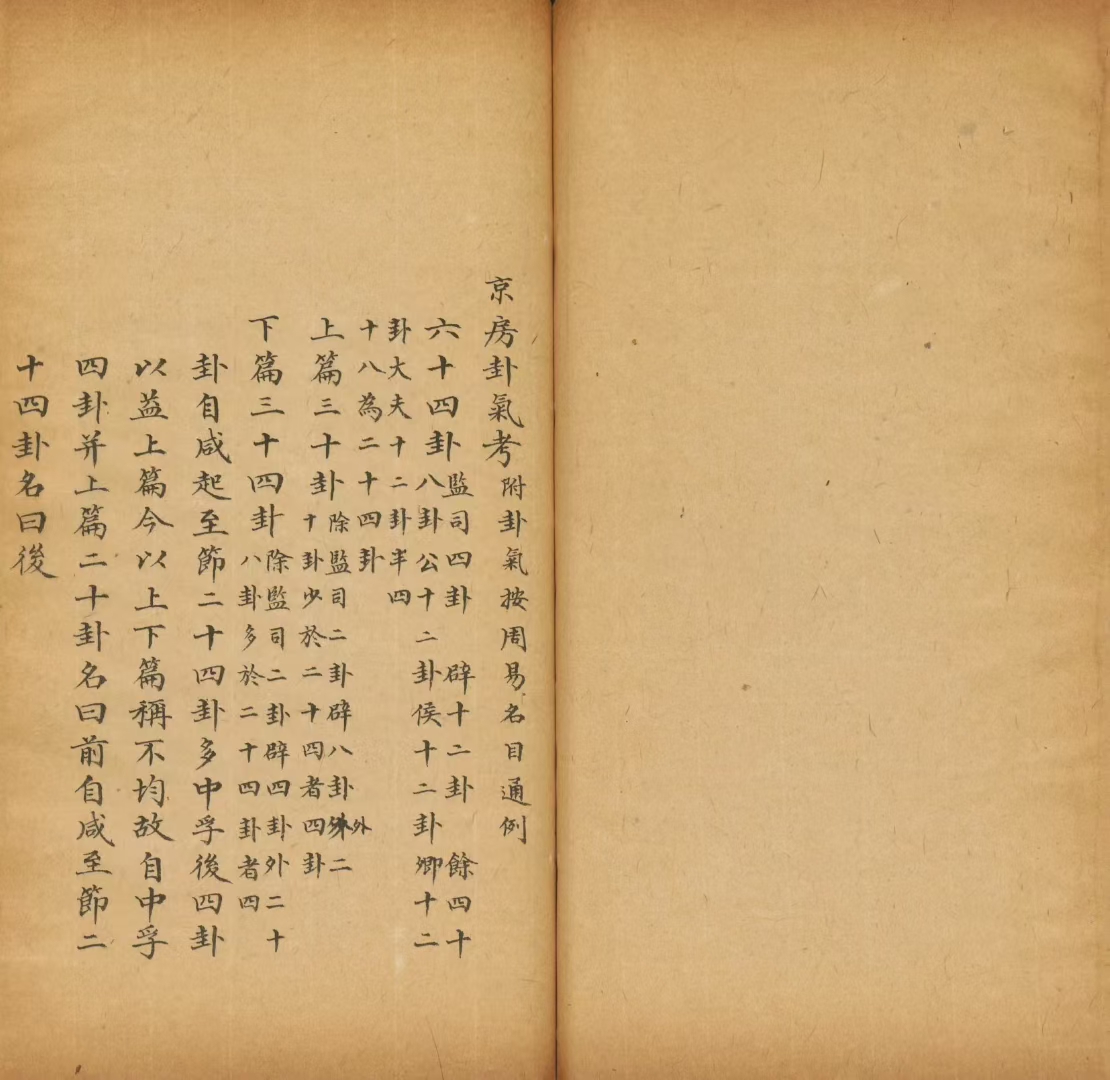 京房卦氣考附卦氣按周易名目通例
六十四卦監司四卦 辟十二卦 餘四十
八卦公十二卦侯十二卦卿十二
卦大夫十二卦半四
十八為二十四卦
上篇三十卦除監司二卦辟八卦外二
十卦少於二十四者四卦
下篇三十四卦除監司二卦辟四卦外二十
八卦多於二十四卦者四
卦自咸起至節二十四卦多中孚後四卦
以益上篇今以上下篇稱不均故自中孚
四卦并上篇二十卦名曰前自咸至節二
十四卦名曰後